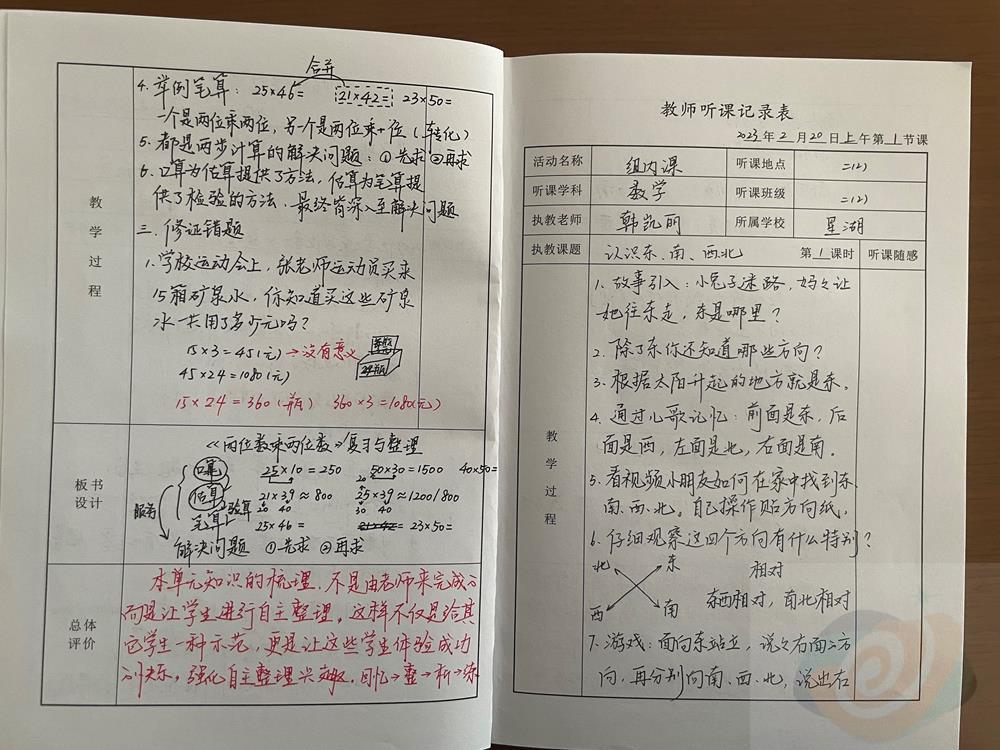 教学过程
合并
4. 举例笔算：25×46= 21×42= 23×50=
一个是两位乘两位，另一个是两位乘十位（转化）
5. 都是两步计算的解决问题：①先求②再求
6. 口算为估算提供了方法，估算为笔算提
供了检验的方法，最终皆深入至解决问题
三、修证错题
1. 学校运动会上，张老师运动员买来
15箱矿泉水，你知道买这些矿泉
水一共用了多少元吗？
15×3=45(元)→没有意义
45×24=1080(元)
24瓶
15×24=360(瓶) 360×3=1080(元)
板书设计
《两位数乘两位数》复习与整理
口算 25×10=250 50×30=1500 40×50=
估算 21×39≈800 25×39≈1200/800
20 40 30 40
笔算 验算 25×46= 25×42= 23×50=
服务
解决问题 ①先求 ②再求
总体评价
本单元知识的梳理，不是由老师来完成，
而是让学生进行自主整理，这样不仅是给其
它学生一种示范，更是让这些学生体验成功
的快乐，强化自主整理兴趣。回忆→整→析→练
教师听课记录表
2023年2月20日上午第1节课
活动名称 组内课 听课地点 二12)
听课学科 数学 听课班级 二12)
执教老师 韩凯丽 所属学校 星湖
执教课题 认识东、南、西、北 第1课时 听课随感
教学过程
1. 故事引入：小兔子迷路，妈妈让
她往东走，东是哪里？
2. 除了东你还知道哪些方向？
3. 根据太阳升起的地方就是东。
4. 通过儿歌记忆：前面是东，后
面是西，左面是北，右面是南。
5. 看视频小朋友如何在家中找到东、
南、西、北。自己操作贴方向纸。
6. 仔细观察这四个方向有什么特别？
北 东 相对
西 南 东西相对，南北相对
7. 游戏：面向东站立，说说右面是方
向，再分别向南、西、北，说出右